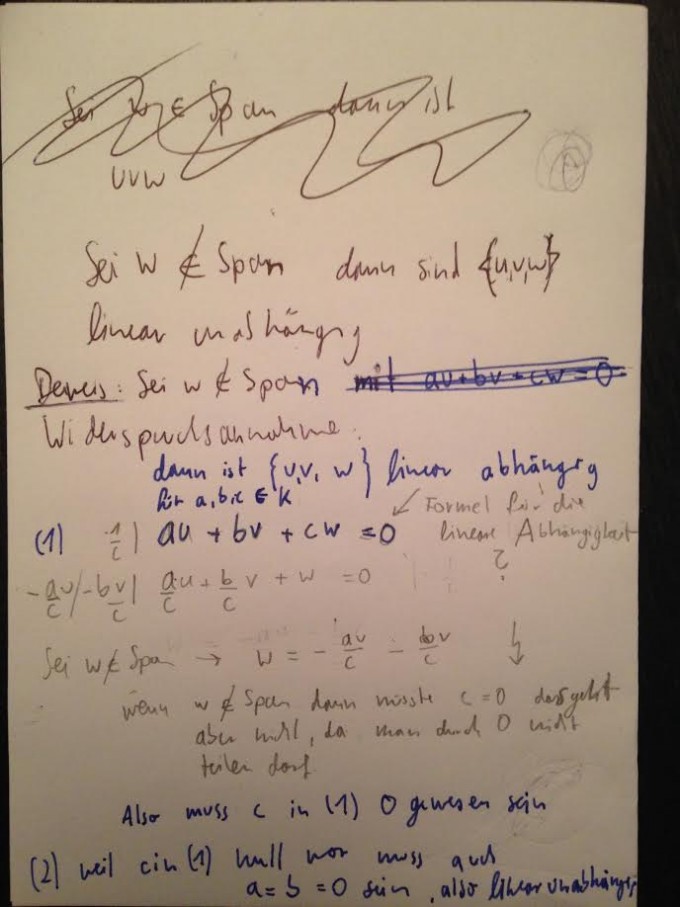 Sei w ∈ Span dann ist
uvw
Sei w ∉ Span dann sind {u,v,w}
linear unabhängig
Beweis: Sei w ∉ Span mit au+bv+cw=0
Widerspruchsannahme:
dann ist {u,v, w} linear abhängig
für a,b,c ∈ K
Formel für die
(1) 1/c | au + bv + cw = 0 lineare Abhängigkeit
?
-au/c / -bv/c | a/c u + b/c v + w = 0
Sei w ∉ Span → w = - au/c - bv/c
wenn w ∉ Span dann müsste c=0 das geht
aber nicht, da man durch 0 nicht
teilen darf.
Also muss c in (1) 0 gewesen sein
(2) weil c in (1) null war muss auch
a = b = 0 sein, also linear unabhängig